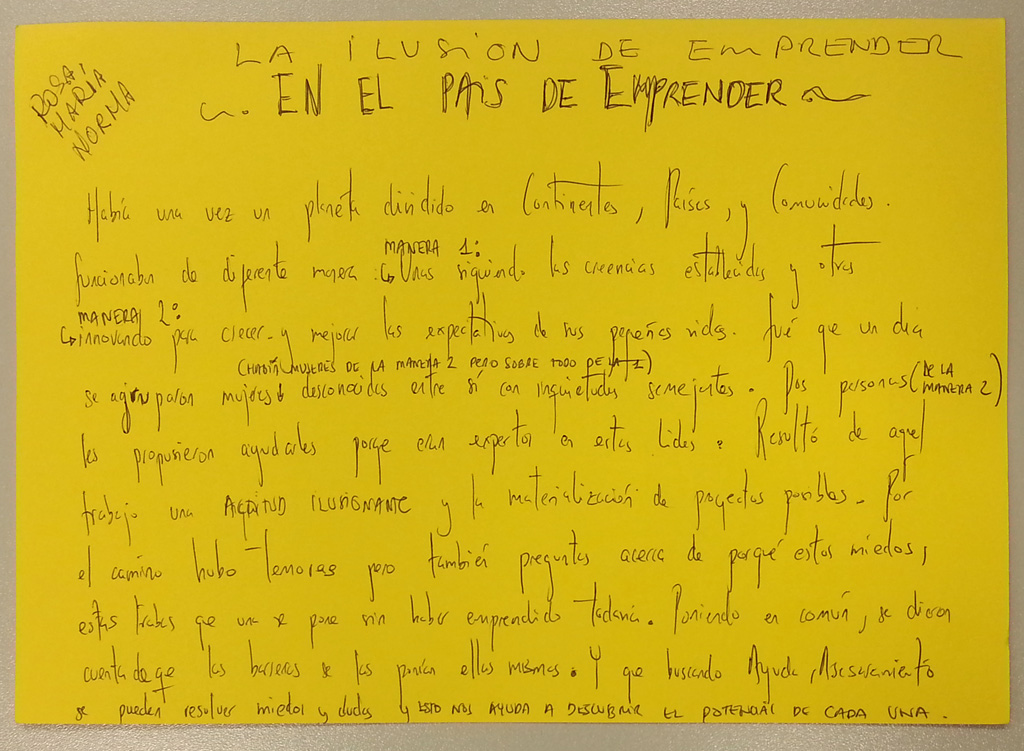 LA ILUSIÓN DE EMPRENDER
EN EL PAÍS DE EMPRENDER
ROSA,
MARÍA
NORMA
Había una vez un planeta dividido en Continentes, Países, y Comunidades.
funcionaban de diferente manera: MANERA 1: Unas siguiendo las creencias establecidas y otras
MANERA 2:
innovando para crecer y mejorar las expectativas de sus pequeñas vidas. Fué que un día
(HABÍA MUJERES DE LA MANERA 2 PERO SOBRE TODO DE LA 1)
se agruparon mujeres desconocidas entre sí con inquietudes semejantes. Dos personas (DE LA MANERA 2)
les propusieron ayudarles porque eran expertos en estas lides. Resultó de aquel
trabajo una ACTITUD ILUSIONANTE y la materialización de proyectos posibles. Por
el camino hubo temores pero también preguntas acerca de porqué estos miedos,
estas trabas que una se pone sin haber emprendido todavía. Poniendo en común, se dieron
cuenta de que las barreras se las ponían ellas mismas. Y que buscando Ayuda, Asesoramiento
se pueden resolver miedos y dudas y ESTO NOS AYUDA A DESCUBRIR EL POTENCIAL DE CADA UNA.